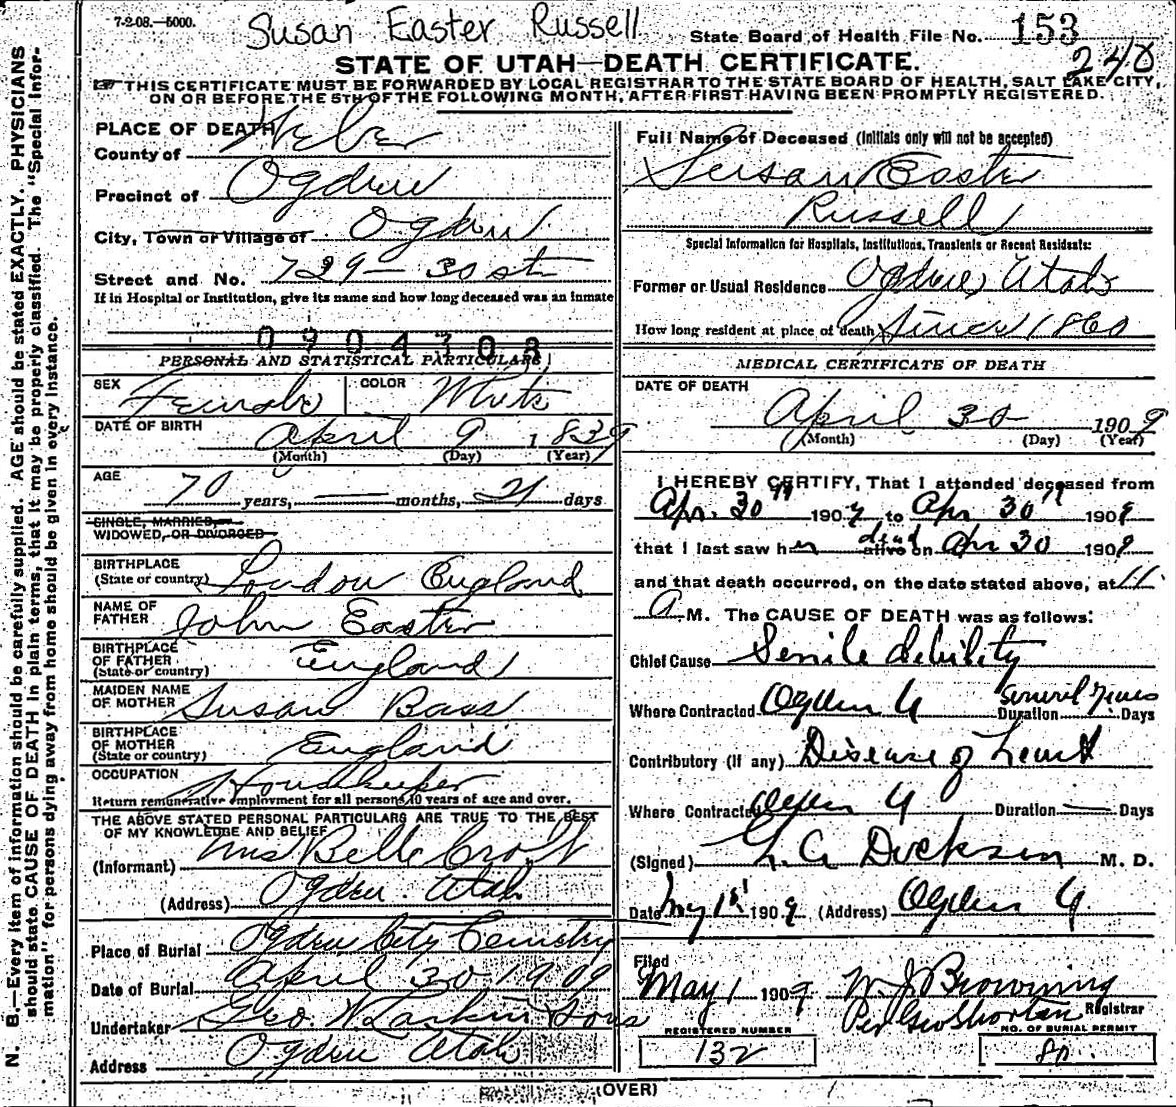 7-2-08.—5000.
Susan Easter Russell
State Board of Health File No. 153
240
STATE OF UTAH—DEATH CERTIFICATE.
THIS CERTIFICATE MUST BE FORWARDED BY LOCAL REGISTRAR TO THE STATE BOARD OF HEALTH, SALT LAKE CITY,
ON OR BEFORE THE 5TH OF THE FOLLOWING MONTH, AFTER FIRST HAVING BEEN PROMPTLY REGISTERED.
PLACE OF DEATH
County of Weber
Precinct of Ogden
City, Town or Village of Ogden
Street and No. 729 - 30 st
If in Hospital or Institution, give its name and how long deceased was an inmate
0904308
PERSONAL AND STATISTICAL PARTICULARS
SEX Female COLOR White
DATE OF BIRTH April 9 1839
(Month) (Day) (Year)
AGE
70 years, — months, 21 days
SINGLE, MARRIED,
WIDOWED, OR DIVORCED
BIRTHPLACE
(State or country) London England
NAME OF
FATHER John Easter
BIRTHPLACE
OF FATHER
(State or country) England
MAIDEN NAME
OF MOTHER Susan Bass
BIRTHPLACE
OF MOTHER
(State or country) England
OCCUPATION Housekeeper
Return remunerative employment for all persons 10 years of age and over.
THE ABOVE STATED PERSONAL PARTICULARS ARE TRUE TO THE BEST
OF MY KNOWLEDGE AND BELIEF
(Informant) Mrs Belle Croft
(Address) Ogden Utah
Place of Burial Ogden City Cemetry
Date of Burial April 30, 1909
Undertaker Geo. W Larkin Sons
Address Ogden Utah
Full Name of Deceased (Initials only will not be accepted)
Susan Easter
Russell
Special Information for Hospitals, Institutions, Transients or Recent Residents:
Former or Usual Residence Ogden, Utah
How long resident at place of death Since 1860
MEDICAL CERTIFICATE OF DEATH
DATE OF DEATH
April 30 1909
(Month) (Day) (Year)
I HEREBY CERTIFY, That I attended deceased from
Apr. 30th 1909 to Apr 30th 1909
that I last saw her dead alive on Apr 30 1909
and that death occurred, on the date stated above, at 11
A M. The CAUSE OF DEATH was as follows:
Chief Cause Senile debility
Where Contracted Ogden U Duration Several years Days
Contributory (If any) Disease of heart
Where Contracted Ogden U Duration — Days
(Signed) Dickson M. D.
Date May 1st 1909 (Address) Ogden U
Filed
May 1 1909 W J Browning
Per Geo Shorten Registrar
REGISTERED NUMBER NO. OF BURIAL PERMIT
132 80
(OVER)
N. B.—Every item of information should be carefully supplied. AGE should be stated EXACTLY. PHYSICIANS
should state CAUSE OF DEATH in plain terms, that it may be properly classified. The "Special Infor-
mation" for persons dying away from home should be given in every instance.